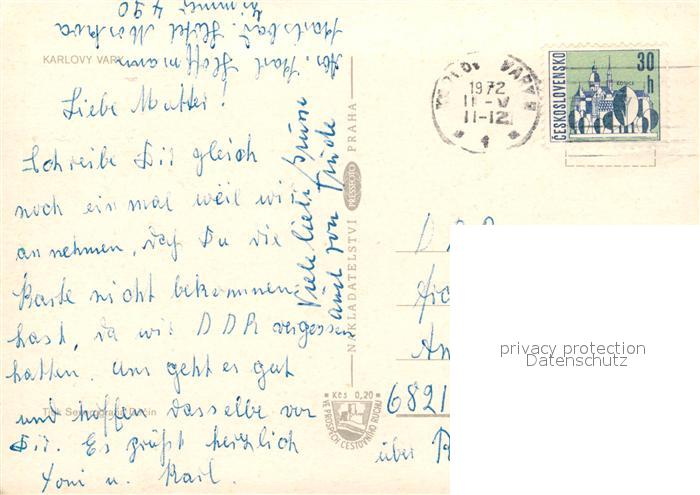 Dr. Karl Hoffmann
Karlsbad. Hotel Moskva
Zimmer 490
KARLOVY VARY
Liebe Mutter!
Schreibe Dir gleich
noch einmal weil wir
annehmen, daß Du die
Karte nicht bekommen
hast, da wir DDR vergessen
hatten. Uns geht es gut
und hoffen dasselbe von
Dir. Es grüßt herzlich
Toni u. Karl.
Viele liebe Grüsse
auch von
NAKLADATELSTVÍ PRESSFOTO PRAHA
Kčs 0,20
VE PROSPĚCH CESTOVNÍHO RUCHU
KARLOVY VARY
1972
11-V
11-12
1
ČESKOSLOVENSKO
30 h
KOŠICE
DDR
6821
über
privacy protection
Datenschutz